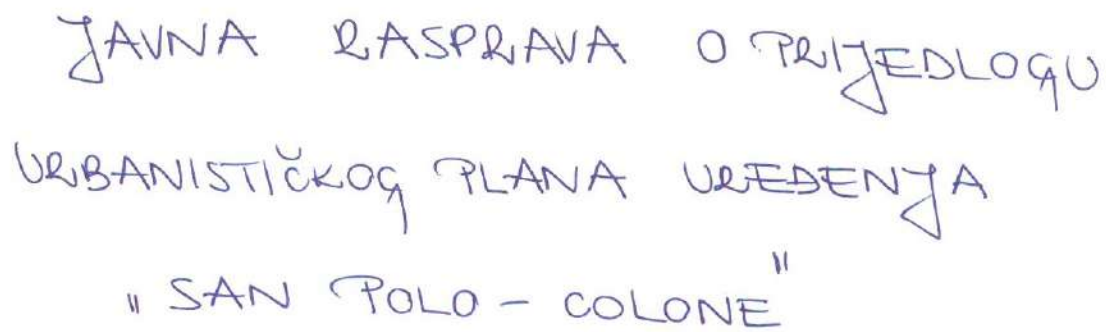 JAVNA RASPRAVA O PRIJEDLOGU
URBANISTIČKOG PLANA UREĐENJA
"SAN POLO - COLONE"